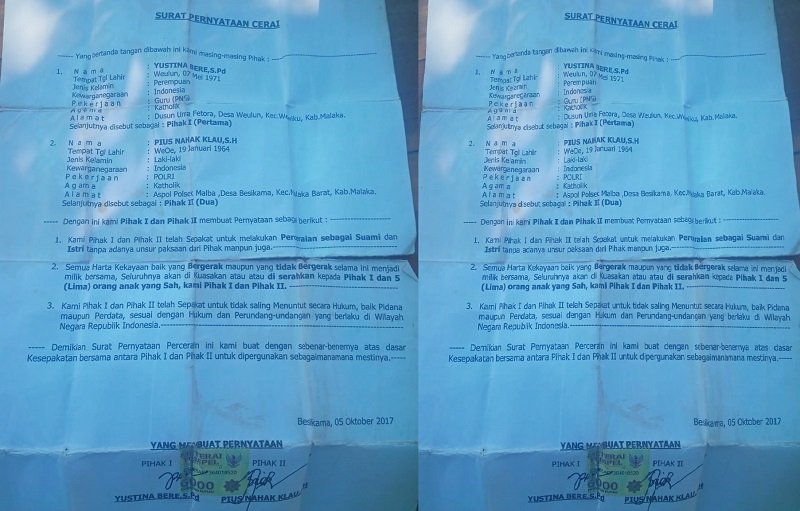 SURAT PERNYATAAN CERAI
------ Yang bertanda tangan dibawah ini kami masing-masing Pihak : ------
1. N a m a : YUSTINA BERE,S.Pd
Tempat Tgl Lahir : Weulun, 07 Mei 1971
Jenis Kelamin : Perempuan
Kewarganegaraan : Indonesia
P e k e r j a a n : Guru (PNS)
A g a m a : Katholik
A l a m a t : Dusun Uma Fetora, Desa Weulun, Kec. Kab.Malaka.
Selanjutnya disebut sebagai : Pihak I (Pertama)
2. N a m a : PIUS NAHAK KLAU,S.H
Tempat Tgl Lahir : WeOe, 19 Januari 1964
Jenis Kelamin : Laki-laki
Kewarganegaraan : Indonesia
P e k e r j a a n : POLRI
A g a m a : Katholik
A l a m a t : Aspol Polset Malba ,Desa Besikama, Kec.Malaka Barat, Kab.Malaka.
Selanjutnya disebut sebagai : Pihak II (Dua)
----- Dengan ini kami Pihak I dan Pihak II membuat Pernyataan sebagi berikut : ------
1. Kami Pihak I dan Pihak II telah Sepakat untuk melakukan Perceraian sebagai Suami dan
Istri tanpa adanya unsur paksaan dari Pihak manpun juga.------
2. Semua Harta Kekayaan baik yang Bergerak maupun yang tidak Bergerak selama ini menjadi
milik bersama, Seluruhnya akan di Kuasakan atau atau di serahkan kepada Pihak I dan 5
(Lima) orang anak yang Sah, kami Pihak I dan Pihak II. ------
3. Kami Pihak I dan Pihak II telah Sepakat untuk tidak saling Menuntut secara Hukum, baik Pidana
maupun Perdata, sesuai dengan Hukum dan Perundang-undangan yang berlaku di Wilayah
Negara Republik Indonesia.------
----- Demikian Surat Pernyataan Perceran ini kami buat dengan sebenar-benernya atas dasar
Kesepakatan bersama antara Pihak I dan Pihak II untuk dipergunakan sebagaimanamana mestinya.-----
Besikama, 05 Oktober 2017
YANG MEMBUAT PERNYATAAN
PIHAK I PIHAK II
6000
YUSTINA BERE,S.Pd PIUS NAHAK KLAU,
SURAT PERNYATAAN CERAI
------ Yang bertanda tangan dibawah ini kami masing-masing Pihak : ------
1. N a m a : YUSTINA BERE,S.Pd
Tempat Tgl Lahir : Weulun, 07 Mei 1971
Jenis Kelamin : Perempuan
Kewarganegaraan : Indonesia
P e k e r j a a n : Guru (PNS)
A g a m a : Katholik
A l a m a t : Dusun Uma Fetora, Desa Weulun, Kec. Kab.Malaka.
Selanjutnya disebut sebagai : Pihak I (Pertama)
2. N a m a : PIUS NAHAK KLAU,S.H
Tempat Tgl Lahir : WeOe, 19 Januari 1964
Jenis Kelamin : Laki-laki
Kewarganegaraan : Indonesia
P e k e r j a a n : POLRI
A g a m a : Katholik
A l a m a t : Aspol Polset Malba ,Desa Besikama, Kec.Malaka Barat, Kab.Malaka.
Selanjutnya disebut sebagai : Pihak II (Dua)
----- Dengan ini kami Pihak I dan Pihak II membuat Pernyataan sebagi berikut : ------
1. Kami Pihak I dan Pihak II telah Sepakat untuk melakukan Perceraian sebagai Suami dan
Istri tanpa adanya unsur paksaan dari Pihak manpun juga.------
2. Semua Harta Kekayaan baik yang Bergerak maupun yang tidak Bergerak selama ini menjadi
milik bersama, Seluruhnya akan di Kuasakan atau atau di serahkan kepada Pihak I dan 5
(Lima) orang anak yang Sah, kami Pihak I dan Pihak II. ------
3. Kami Pihak I dan Pihak II telah Sepakat untuk tidak saling Menuntut secara Hukum, baik Pidana
maupun Perdata, sesuai dengan Hukum dan Perundang-undangan yang berlaku di Wilayah
Negara Republik Indonesia.------
----- Demikian Surat Pernyataan Perceran ini kami buat dengan sebenar-benernya atas dasar
Kesepakatan bersama antara Pihak I dan Pihak II untuk dipergunakan sebagaimanamana mestinya.-----
Besikama, 05 Oktober 2017
YANG MEMBUAT PERNYATAAN
PIHAK I PIHAK II
6000
YUSTINA BERE,S.Pd PIUS NAHAK KLAU,